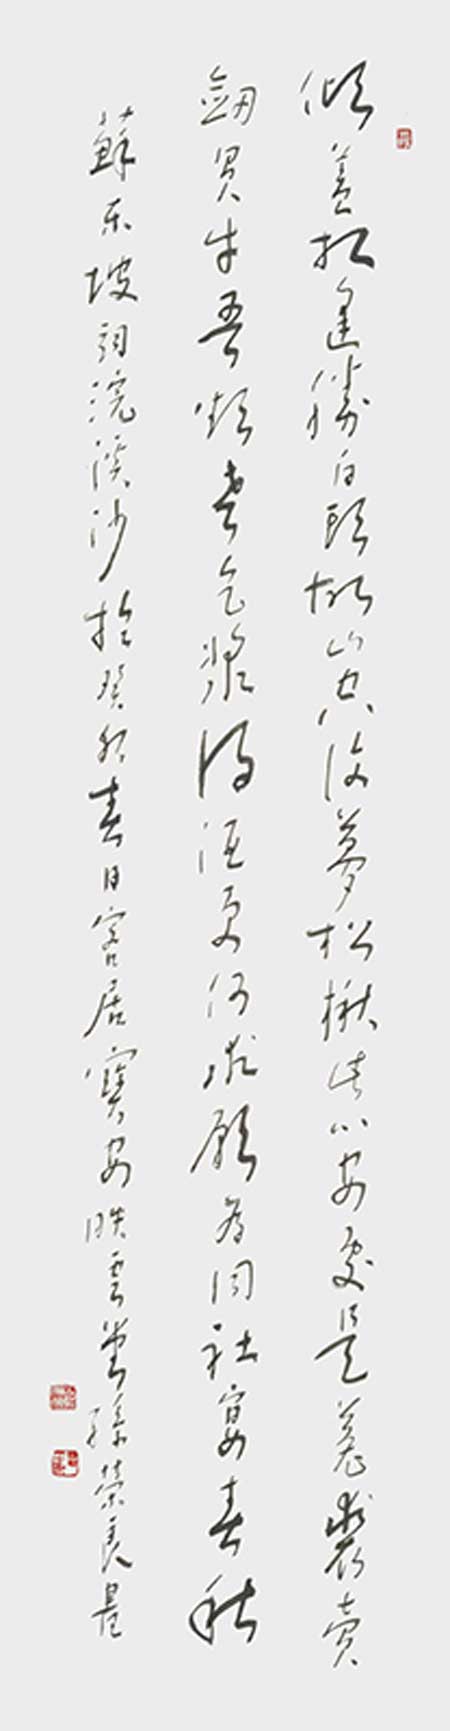 傾蓋相逢勝白頭故山空復夢松楸此心安處是菟裘賣
劒買牛吾欲老乞漿得酒更何求願為同社宴春秋
蘇東坡詞浣溪沙於癸卯春日客居寶安映雲堂孫榮良